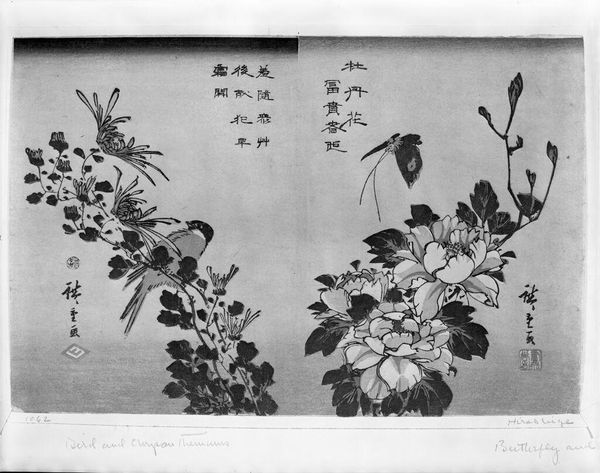 牡丹花
富貴者也
羞隨衆艸
後敢犯早
霜開
廣重画
廣重画
1062
Hiroshige
Bird and Chrysanthemums
Butterfly and